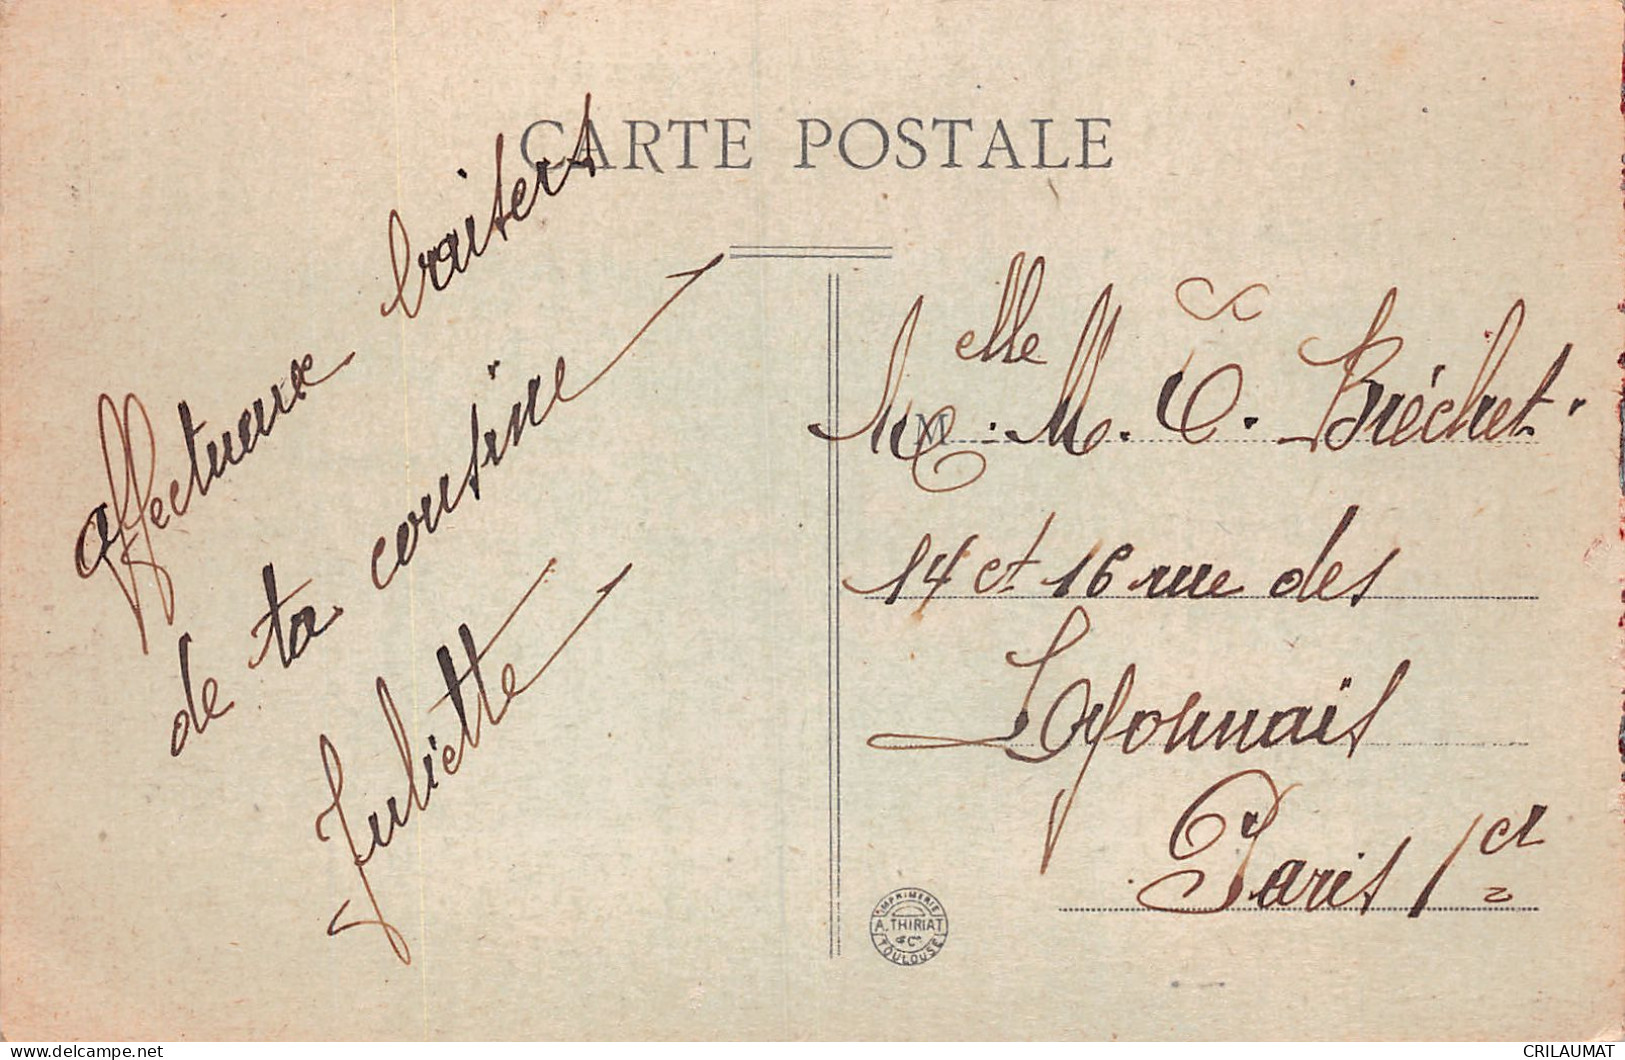 CARTE POSTALE
affectueux baisers
de ta cousine
Juliette
M
Melle. M. T. Bréchet.
14 et 16 rue des
Lyonnais
Paris 1er
IMPRIMERIE
A. THIRIAT
& Cie
TOULOUSE
delcampe.net
CRILAUMAT